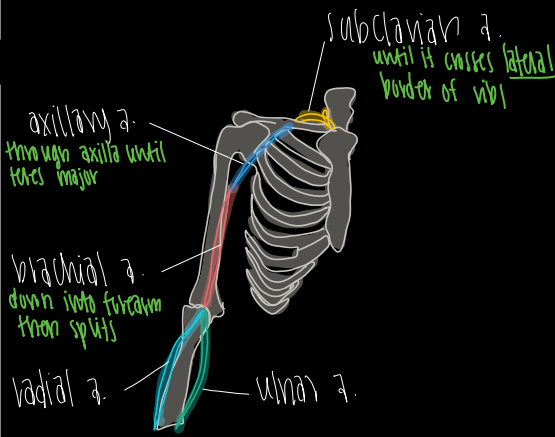 subclavian a.
until it crosses lateral
border of rib1
axillary a.
through axilla until
teres major
brachial a.
down into forearm
then splits
radial a.
ulnar a.